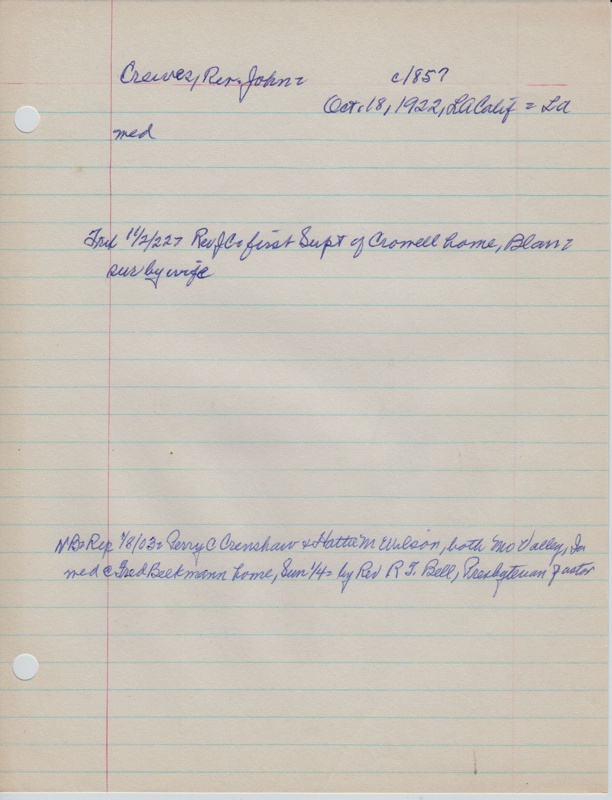 Crewes, Rev. John = c1857
Oct. 18, 1922, LA Calif = LA
med
Trib 11/2/22 = Rev JC = first Supt of Crowell home, Blair =
sur by wife
NB = Rep 1/8/03 = Perry C Crenshaw & Hattie M Wilson, both Mo Valley, Ia
med @ Fred Beekmann home, Sun 1/4 = by Rev R. T. Bell, Presbyterian pastor